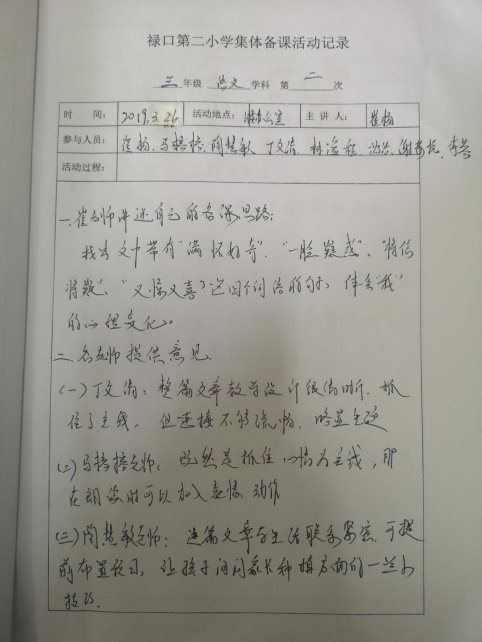 禄口第二小学集体备课活动记录
三 年级 语文 学科 第 二 次
时 间: 2019.3.26 活动地点: 办公室 主 讲 人: 崔杨
参与人员: 崔杨、马培培、陶慧敏 丁文清、
活动过程:
一.崔老师讲述自己的备课思路:
找出文中带有“满怀好奇”、“一脸疑惑”、“将信
将疑”、“又惊又喜”这四个词语的句子,体会“我”
的心理变化。
二.各老师提供意见
(一)丁文清:整篇文章教学设计很清晰.抓
住了主线,但连接不够流畅.略显生硬
(二)马培培老师:既然是抓住心情为主线,那
在朗读时可以加入表情 动作
(三)陶慧敏老师:这篇文章与生活联系紧密.可提
前布置预习,让孩子询问家长种植方面的一些小
技巧.